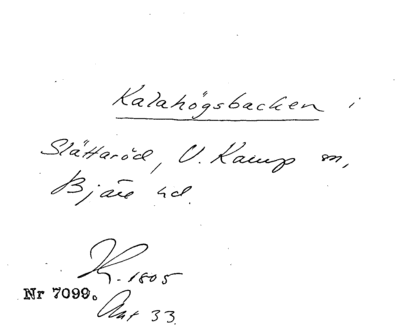 Kalahögsbacken i
Slättaröd, V. Karup sn,
Bjäre hd.
K. 1805
Nr 7099.
Akt 33.